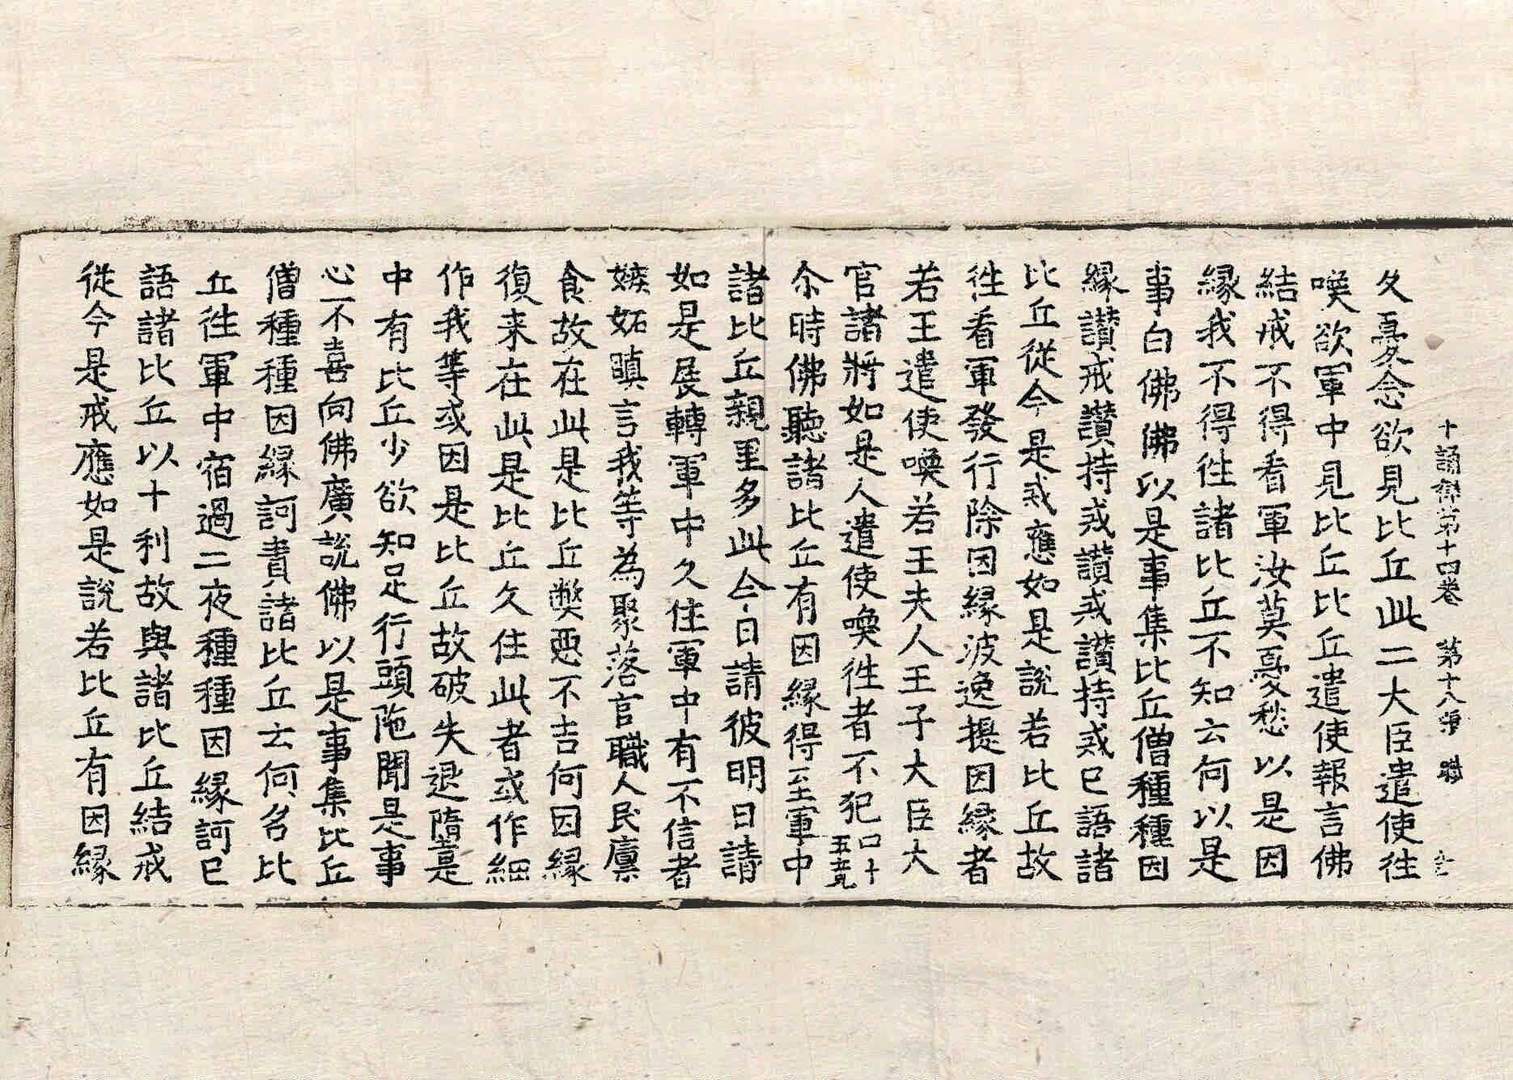 十誦律第十四卷 第十八張 職
久憂念欲見比丘此二大臣遣使往
喚欲軍中見比丘比丘遣使報言佛
結戒不得看軍汝莫憂愁以是因
縁我不得往諸比丘不知云何以是
事白佛佛以是事集比丘僧種種因
縁讃戒讃持戒讃戒讃持戒已語諸
比丘從今是戒應如是說若比丘故
往看軍發行除因縁波逸提因縁者
若王遣使喚若王夫人王子大臣大
官諸將如是人遣使喚往者不犯四十五竟
尒時佛聽諸比丘有因縁得至軍中
諸比丘親里多此今日請彼明日請
如是展轉軍中久住軍中有不信者
嫉妬瞋言我等為聚落官職人民廩
食故在此是比丘弊惡不吉何因縁
復来在此是比丘久住此者或作細
作我等或因是比丘故破失退墮是
中有比丘少欲知足行頭陁聞是事
心不喜向佛廣說佛以是事集比丘
僧種種因縁訶責諸比丘云何名比
丘往軍中宿過二夜種種因縁訶已
語諸比丘以十利故與諸比丘結戒
從今是戒應如是說若比丘有因縁